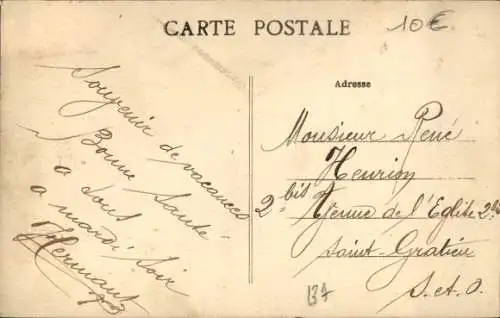 CARTE POSTALE
10€
Adresse
Souvenir de vacances
Bonne Santé
a tous
a mardi soir
Monsieur René
Henrion
2 bis Avenue de l'Eglise 2 bis
Saint-Gratien
S.et.O.
137